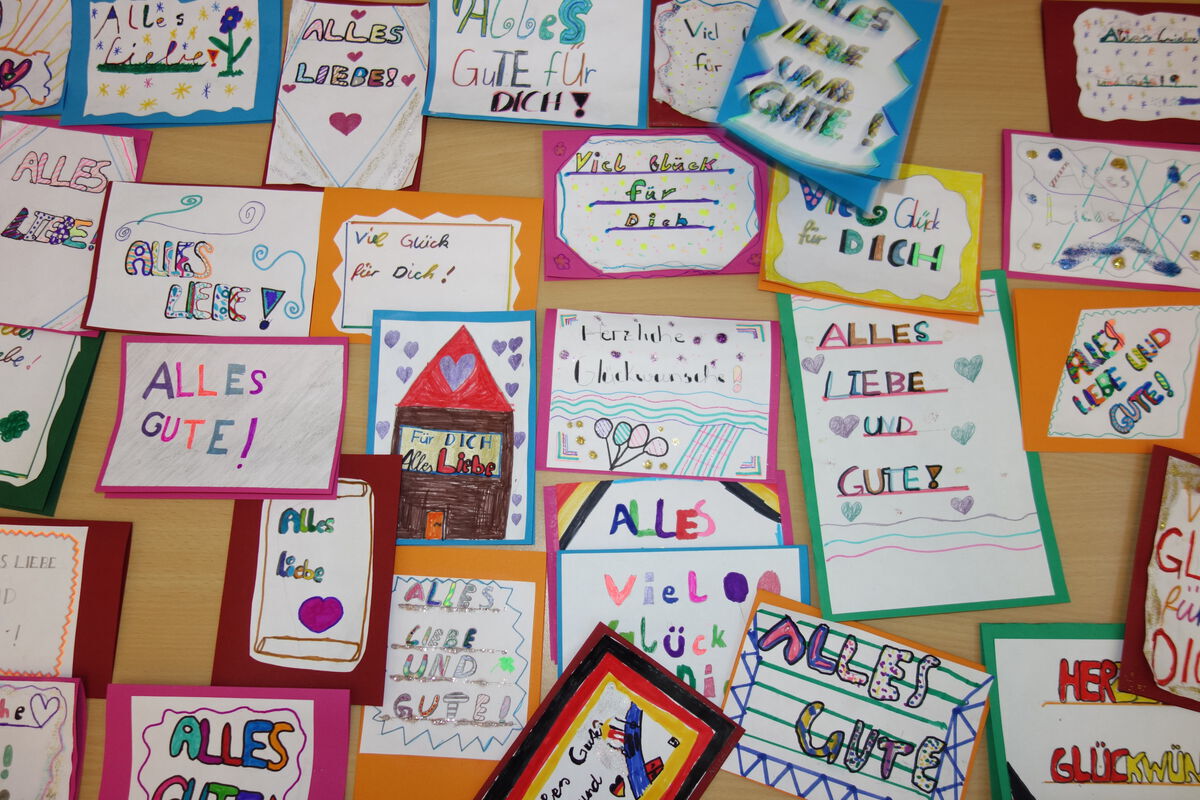 Alles
Liebe!
ALLES
LIEBE!
ALLES
GUTE FÜR
DICH!
Viel
für
ALLES
LIEBE
UND
GUTE!
Alles Liebe
und Gute!
ALLES
LIEBE!
ALLES
LIEBE!
Viel Glück
für Dich!
Viel Glück
für
Dich
VIEL Glück
für DICH
Alles
Liebe
ALLES
GUTE!
Für DICH
Alles Liebe
Herzliche
Glückwünsche!
ALLES
LIEBE
UND
GUTE!
ALLES
LIEBE UND
GUTE!
Liebe!
Alles
liebe
ALLES
Viel
Glück
ALLES
LIEBE
UND
GUTE!
LIEBE
ALLES
GUTE
ALLES
Gutes
und
für
GLÜCKWÜN